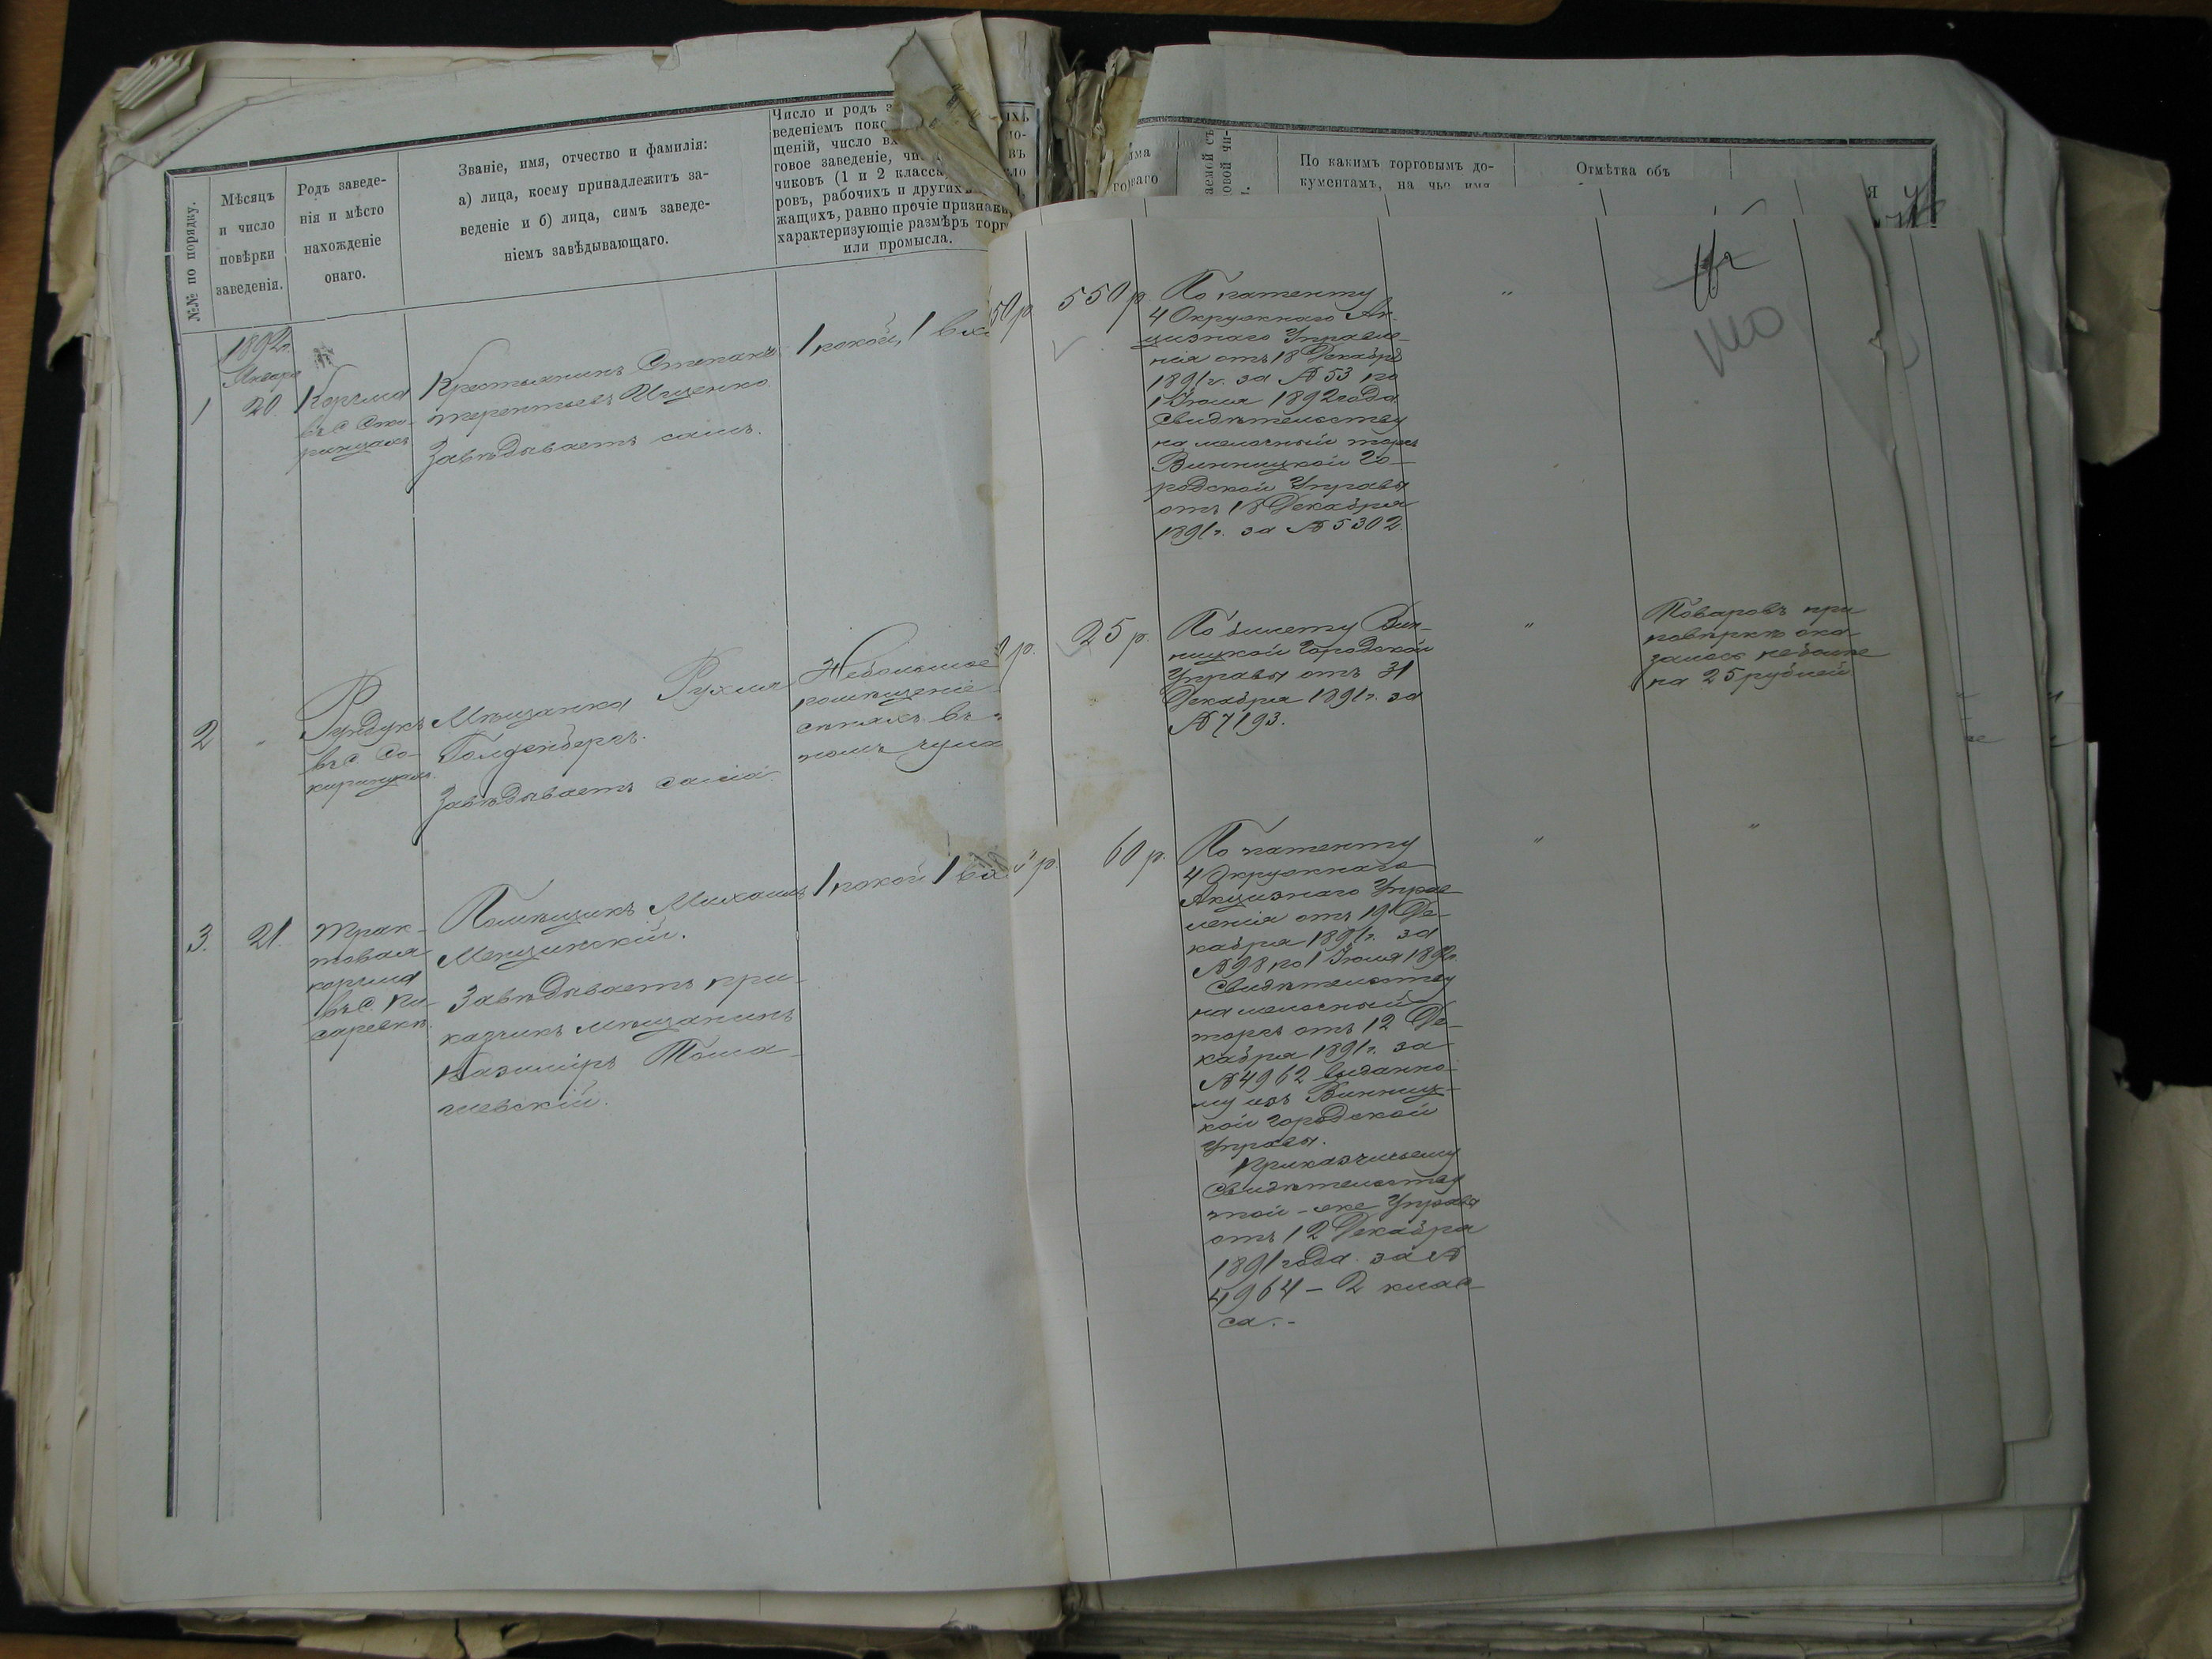 №№ по порядку.
Мѣсяцъ
и число
повѣрки
заведенія.
Родъ заведе-
нія и мѣсто
нахожденіе
онаго.
Званіе, имя, отчество и фамилія:
а) лица, коему принадлежитъ за-
веденіе и б) лица, симъ заведе-
ніемъ завѣдывающаго.
Число и родъ
веденіемъ
щеній, число
говое заведеніе,
чиковъ (1 и 2 класса
ровъ, рабочихъ и другихъ
жащихъ, равно прочіе признаки,
характеризующіе размѣръ торг
или промысла.
По какимъ торговымъ до-
кументамъ, на чье имя
Отмѣтка объ
1892 г.
Января
1
20.
Корчма
въ с.
Крестьянинъ Степанъ
Терентьевъ Ищенко.
Завѣдываетъ самъ.
1 покой, 1 вх
50 р.
550 р.
По патенту
4 Окружнаго Ак-
цизнаго Управле-
нія отъ 18 Декабря
1891 г. за № 53 по
1 Іюля 1892 года
Свидѣтельству
на мелочный торгъ
Винницкой Го-
родской Управы
отъ 18 Декабря
1891 г. за № 5302.
2
"
Рундукъ
въ с. Со-
Мѣщанка Рухля
Голденбергъ.
Завѣдываетъ сама
Небольшое
помѣщеніе
сѣняхъ въ
р.
25 р.
По билету Вин-
ницкой Городской
Управы отъ 31
Декабря 1891 г. за
№ 7193.
"
Товаровъ при
повѣркѣ ока
залось не болѣе
на 25 рублей
3.
21.
Трак-
товая
корчма
въ с. Пи-
саревкѣ.
Помѣщикъ Михаилъ
Менщинскій.
Завѣдываетъ при-
казчикъ мѣщанинъ
Казиміръ Тома-
шевскій.
1 покой 1 вх
р.
60 р.
По патенту
4 Окружнаго
Акцизнаго Управ
ленія отъ 19 Де-
кабря 1891 г. за
№ 98 по 1 Іюля 1892 г.
Свидѣтельству
на мелочный
торгъ отъ 12 Де-
кабря 1891 г. за
№ 4962 выданно-
му изъ Винниц-
кой Городской
Управы.
Приказчичьему
Свидѣтельству
той-же Управы
отъ 12 Декабря
1891 года за №
4964 – 2 клас-
са. -
"
"